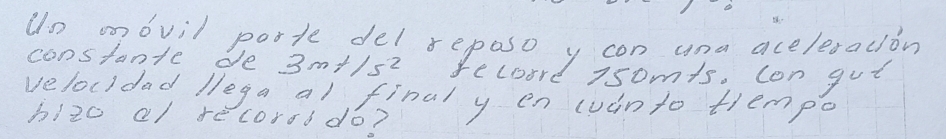 Un móvil parte del reposo y con una aceleración
constante de 3mt/s² recorre 150mts. Con qué
velocidad llega al final y en cuánto tiempo
hizo el recorrido?